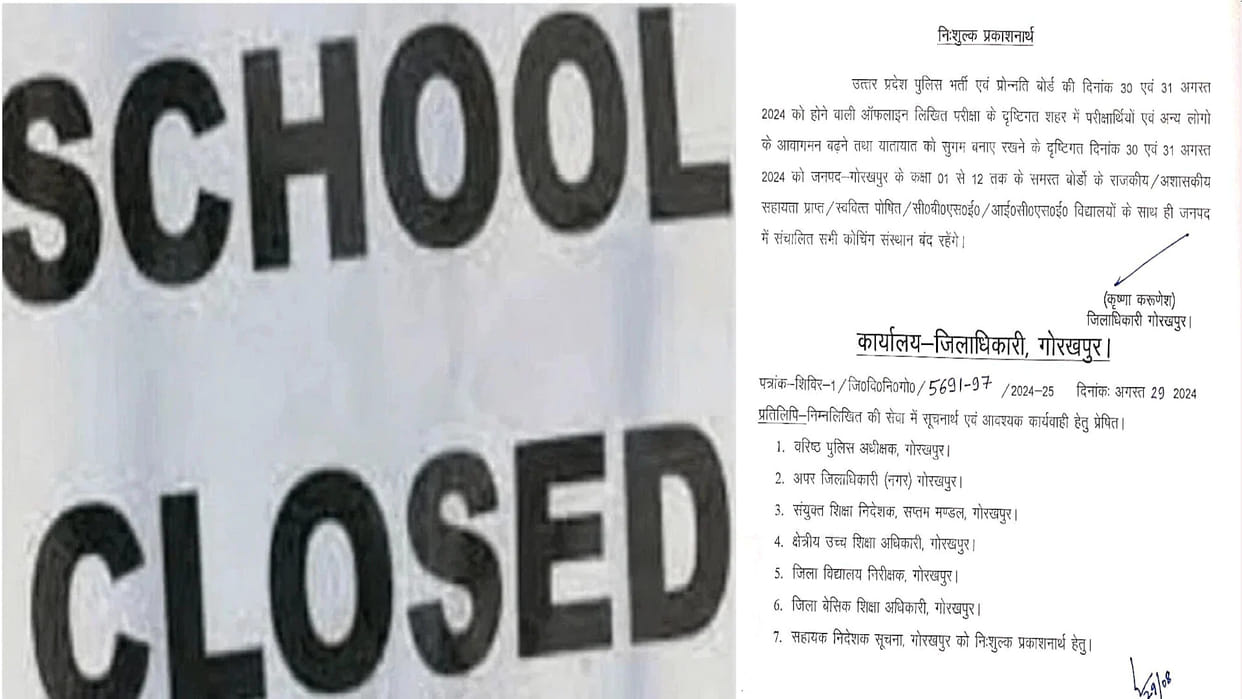 SCHOOL
CLOSED
निःशुल्क प्रकाशनार्थ
उत्तर प्रदेश पुलिस भर्ती एवं प्रोन्नति बोर्ड की दिनांक 30 एवं 31 अगस्त
2024 को होने वाली ऑफलाइन लिखित परीक्षा के दृष्टिगत शहर में परीक्षार्थियों एवं अन्य लोगो
के आवागमन बढ़ने तथा यातायात को सुगम बनाए रखने के दृष्टिगत दिनांक 30 एवं 31 अगस्त
2024 को जनपद-गोरखपुर के कक्षा 01 से 12 तक के समस्त बोर्डो के राजकीय/अशासकीय
सहायता प्राप्त/स्ववित्त पोषित/सी०बी०एस०ई०/आई०सी०एस०ई० विद्यालयों के साथ ही जनपद
में संचालित सभी कोचिंग संस्थान बंद रहेंगे।
(कृष्णा करूणेश)
जिलाधिकारी गोरखपुर।
कार्यालय-जिलाधिकारी, गोरखपुर।
पत्रांक-शिविर-1/जि०वि०नि०गो०/5691-97/2024-25 दिनांकः अगस्त 29 2024
प्रतिलिपि-निम्नलिखित की सेवा में सूचनार्थ एवं आवश्यक कार्यवाही हेतु प्रेषित।
1. वरिष्ठ पुलिस अधीक्षक, गोरखपुर।
2. अपर जिलाधिकारी (नगर) गोरखपुर।
3. संयुक्त शिक्षा निदेशक, सप्तम मण्डल, गोरखपुर।
4. क्षेत्रीय उच्च शिक्षा अधिकारी, गोरखपुर।
5. जिला विद्यालय निरीक्षक, गोरखपुर।
6. जिला बेसिक शिक्षा अधिकारी, गोरखपुर।
7. सहायक निदेशक सूचना, गोरखपुर को निःशुल्क प्रकाशनार्थ हेतु।
29/08